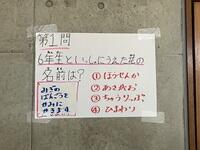 第1問
6年生といっしょにうえた花の
名前は?
①ほうせんか
②あさがお
③ちゅうりっぷ
④ひまわり
みぎの
ばんごうを
かみに
かきます